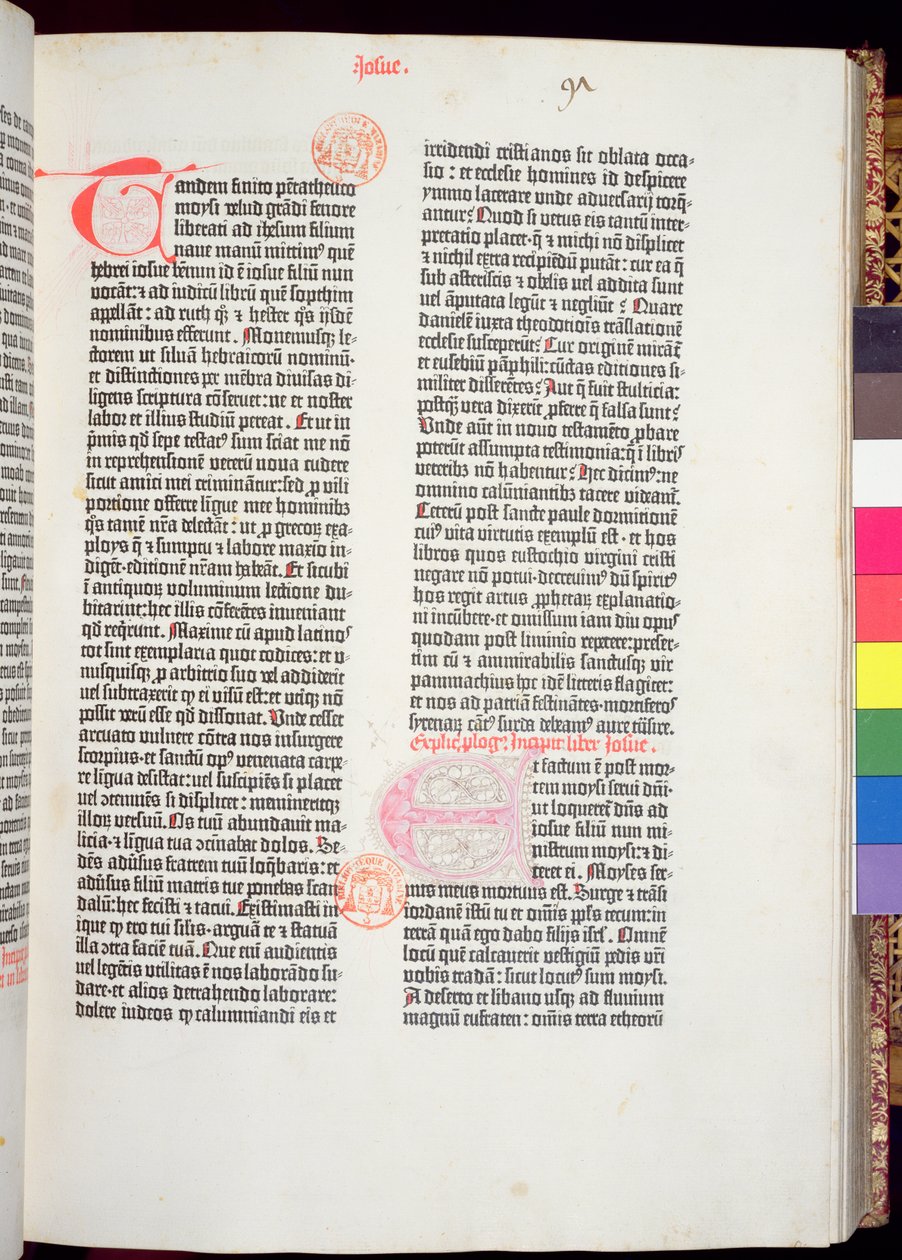 Iosue.
91
Tandem finito pētatheuco
moysi velud grādi fenore
liberati ad ihesum filium
naue manū mittimꝰ quē
hebrei iosue bēnun id ē iosue filiū nun
vocāt: ⁊ ad iudicū librū quē sopthim
appellāt: ad ruth qꝫ ⁊ hester qͦs ijsdē
nominibus efferunt. Monemusqꝫ le-
ctorem ut siluā hebraicorū nominū·
et distinctiones per mēbra diuisas di-
ligens scriptura cōseruet: ne et noster
labor et illius studiū pereat. Et ut in
p̄mis qd̄ sepe testatꝰ sum sciat me nō
in reprehensionē veterū noua cudere
sicut amici mei criminātur: sed ꝓ vili
portione offerre līgue mee hominibꝫ
qͦs tamē nr̄a delectāt: ut ꝓ grecoꝝ exa-
ploys q̄ ⁊ sumptu ⁊ labore maxīo in-
digēt· editionē nr̄am habeāt. Et sicubi
ī antiquoꝝ voluminum lectione du-
bitarint: hec illis cōferētes inueniant
qd̄ reqͥrunt. Maxime cū apud latinoſ
tot sint exemplaria quot codices: et v-
nusquisqꝫ ꝓ arbitrio suo vel addiderit
uel subtraxerit qͥ ei visū est: et utiqꝫ nō
possit verū esse qd̄ dissonat. Vnde cesset
arcuato vulnere cōtra nos insurgere
scorpius· et sanctū opꝰ venenata carpe-
re līgua desistat: uel suscipiēs si placet
uel ↄtemnēs si displicet: memineritqꝫ
illoꝝ versuū. Os tuū abundauit ma-
licia· ⁊ līgua tua ↄcinabat dolos. Se-
dēs adūsus fratrem tuū loqͣbaris: et
adūsus filiū matris tue ponebas scan
dalū: hec fecisti ⁊ tacui. Existimasti in
ique qͥ ero tui silis· arguā te ⁊ statuā
illa ↄtra faciē tuā. Que enī audientis
uel legētis vtilitas ē nos laborādo su-
dare· et alios detrahendo laborare:
dolere iudeos qͥ calumniandi eis et
irridendi cristianos sit oblata occa-
sio: et ecclesie homines id despicere
ymmo lacerare vnde aduersarij torq̄-
antur? Quod si vetus eis tantū inter-
pretatio placet· q̄ ⁊ michi nō displicet
⁊ nichil extra recipiēdū putāt: cur ea q̄
sub asteriscis ⁊ obelis uel addita sunt
uel āputata legūt ⁊ negliūt? Quare
danielē iuxta theodotiōis trāslationē
ecclesie susceperūt? Cur originē mirāt̄
et eusebiū pāphili: cūctas editiones si-
militer disserētes? Aut q̄ fuit stulticia:
postqꝫ vera dixerīt ꝓferre q̄ falsa sunt?
Vnde aūt in nouo testamēto ꝓbare
poterūt assumpta testimonia: q̄ ī libriſ
veteribꝫ nō habentur? Hec dicimꝰ: ne
omnino calūniantibꝫ tacere videam̄.
Ceterū post sancte paule dormitionē
cuiꝰ vita virtutis exemplū est· et hos
libros quos eustochio virgini cristi
negare nō potui· decreuimꝰ dū spiritꝰ
hos regit artus ꝓphetaꝝ explanatio-
ni incūbere· et omissum iam diu opuſ
quodam post liminio repetere: preser-
tim cū ⁊ ammirabilis sanctusqꝫ vir
pammachius hoc idē litteris flagitet:
et nos ad patriā festinātes· mortiferoſ
syrenaꝝ cātꝰ surda debeamꝰ aure trāsire.
Explic̄ ꝓlogꝰ. Incipit liber Iosue.
Et factum ē post mor-
tem moysi serui dn̄i·
ut loqueret̄ dn̄s ad
iosue filiū nun mi-
nistrum moysi: ⁊ di-
ceret ei. Moyses ser-
uus meus mortuus est. Surge ⁊ trāsi
iordanē istū tu et om̄is ppl̄s tecum: in
terrā quā ego dabo filijs isrl̄. Omnē
locū quē calcauerit vestigiū pedis vr̄i
vobis tradā: sicut locutꝰ sum moysi.
A deserto et libano usqꝫ ad fluuium
magnū eufraten: om̄is terra etheorū
BIBLIOTHEQUE MAZARINE
BIBLIOTHEQUE MAZARINE